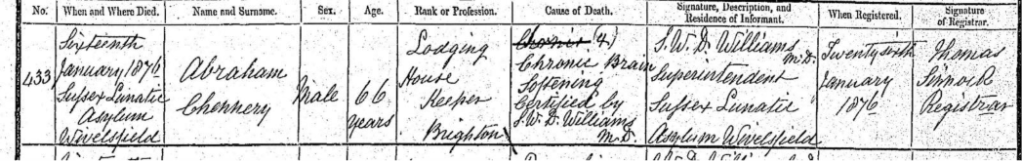 No. When and Where Died. Name and Surname. Sex. Age. Rank or Profession. Cause of Death. Signature, Description, and Residence of Informant. When Registered. Signature of Registrar.
433
Sixteenth
January 1876
Sussex Lunatic
Asylum
Wivelsfield
Abraham
Chennery
Male
66
years
Lodging
House
Keeper
Brighton
(4.)
Chronic Brain
Softening
Certified by
S. W. D. Williams
M.D.
S. W. D. Williams
M.D.
Superintendent
Sussex Lunatic
Asylum Wivelsfield
Twenty sixth
January
1876
Thomas
Sinnock
Registrar